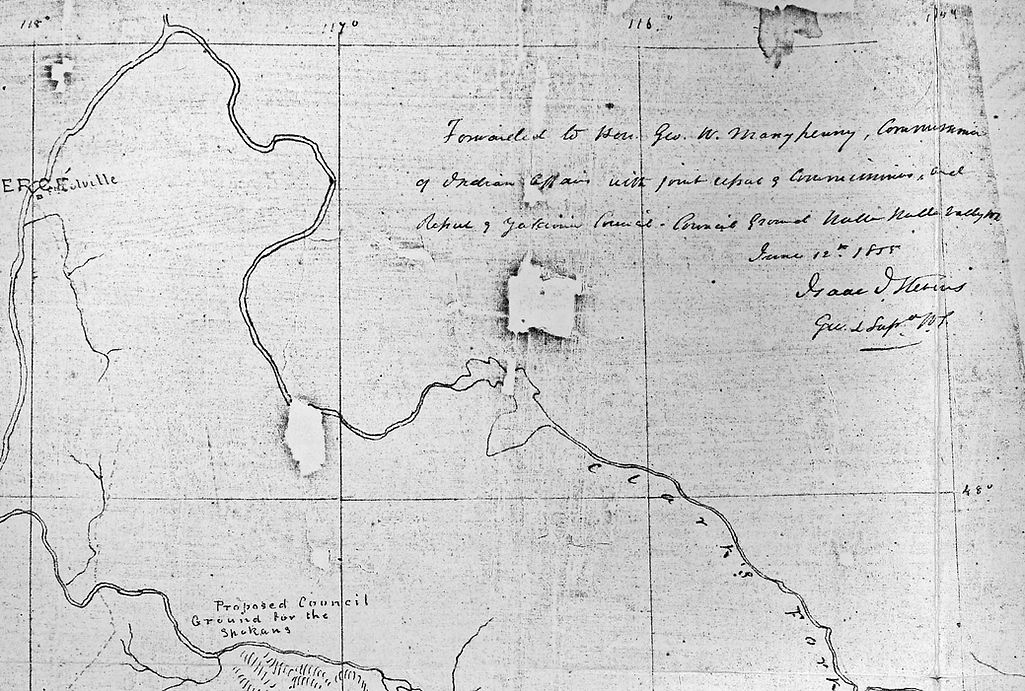 118° 117° 116°
Forwarded to Hon. Geo. W. Manypenny, Commissioner
of Indian Affairs with joint report of Commissioners, and
Report of Yakima Council - Council Ground Walla Walla Valley
June 12th 1855
Isaac I. Stevens
Gov. & Supt. W.T.
Colville
Clark's Fork
48°
Proposed Council
Ground for the
Spokans